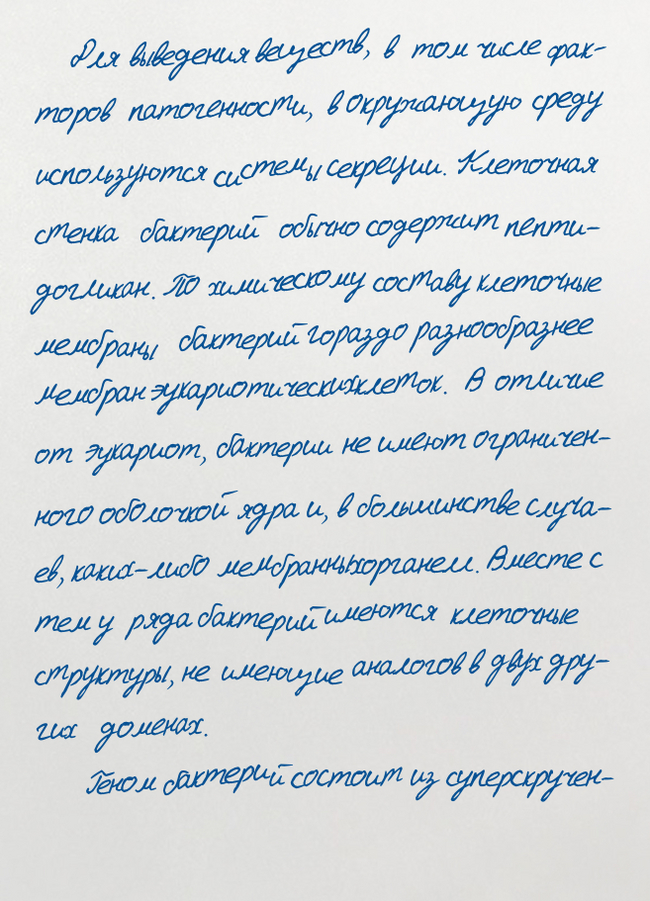 Для выведения веществ, в том числе фак-
торов патогенности, в окружающую среду
используются системы секреции. Клеточная
стенка бактерий обычно содержит пепти-
догликан. По химическому составу клеточные
мембраны бактерий гораздо разнообразнее
мембран эукариотических клеток. В отличие
от эукариот, бактерии не имеют ограничен-
ного оболочкой ядра и, в большинстве случа-
ев, каких-либо мембранных органелл. Вместе с
тем у ряда бактерий имеются клеточные
структуры, не имеющие аналогов в двух дру-
гих доменах.
Геном бактерий состоит из суперскручен-